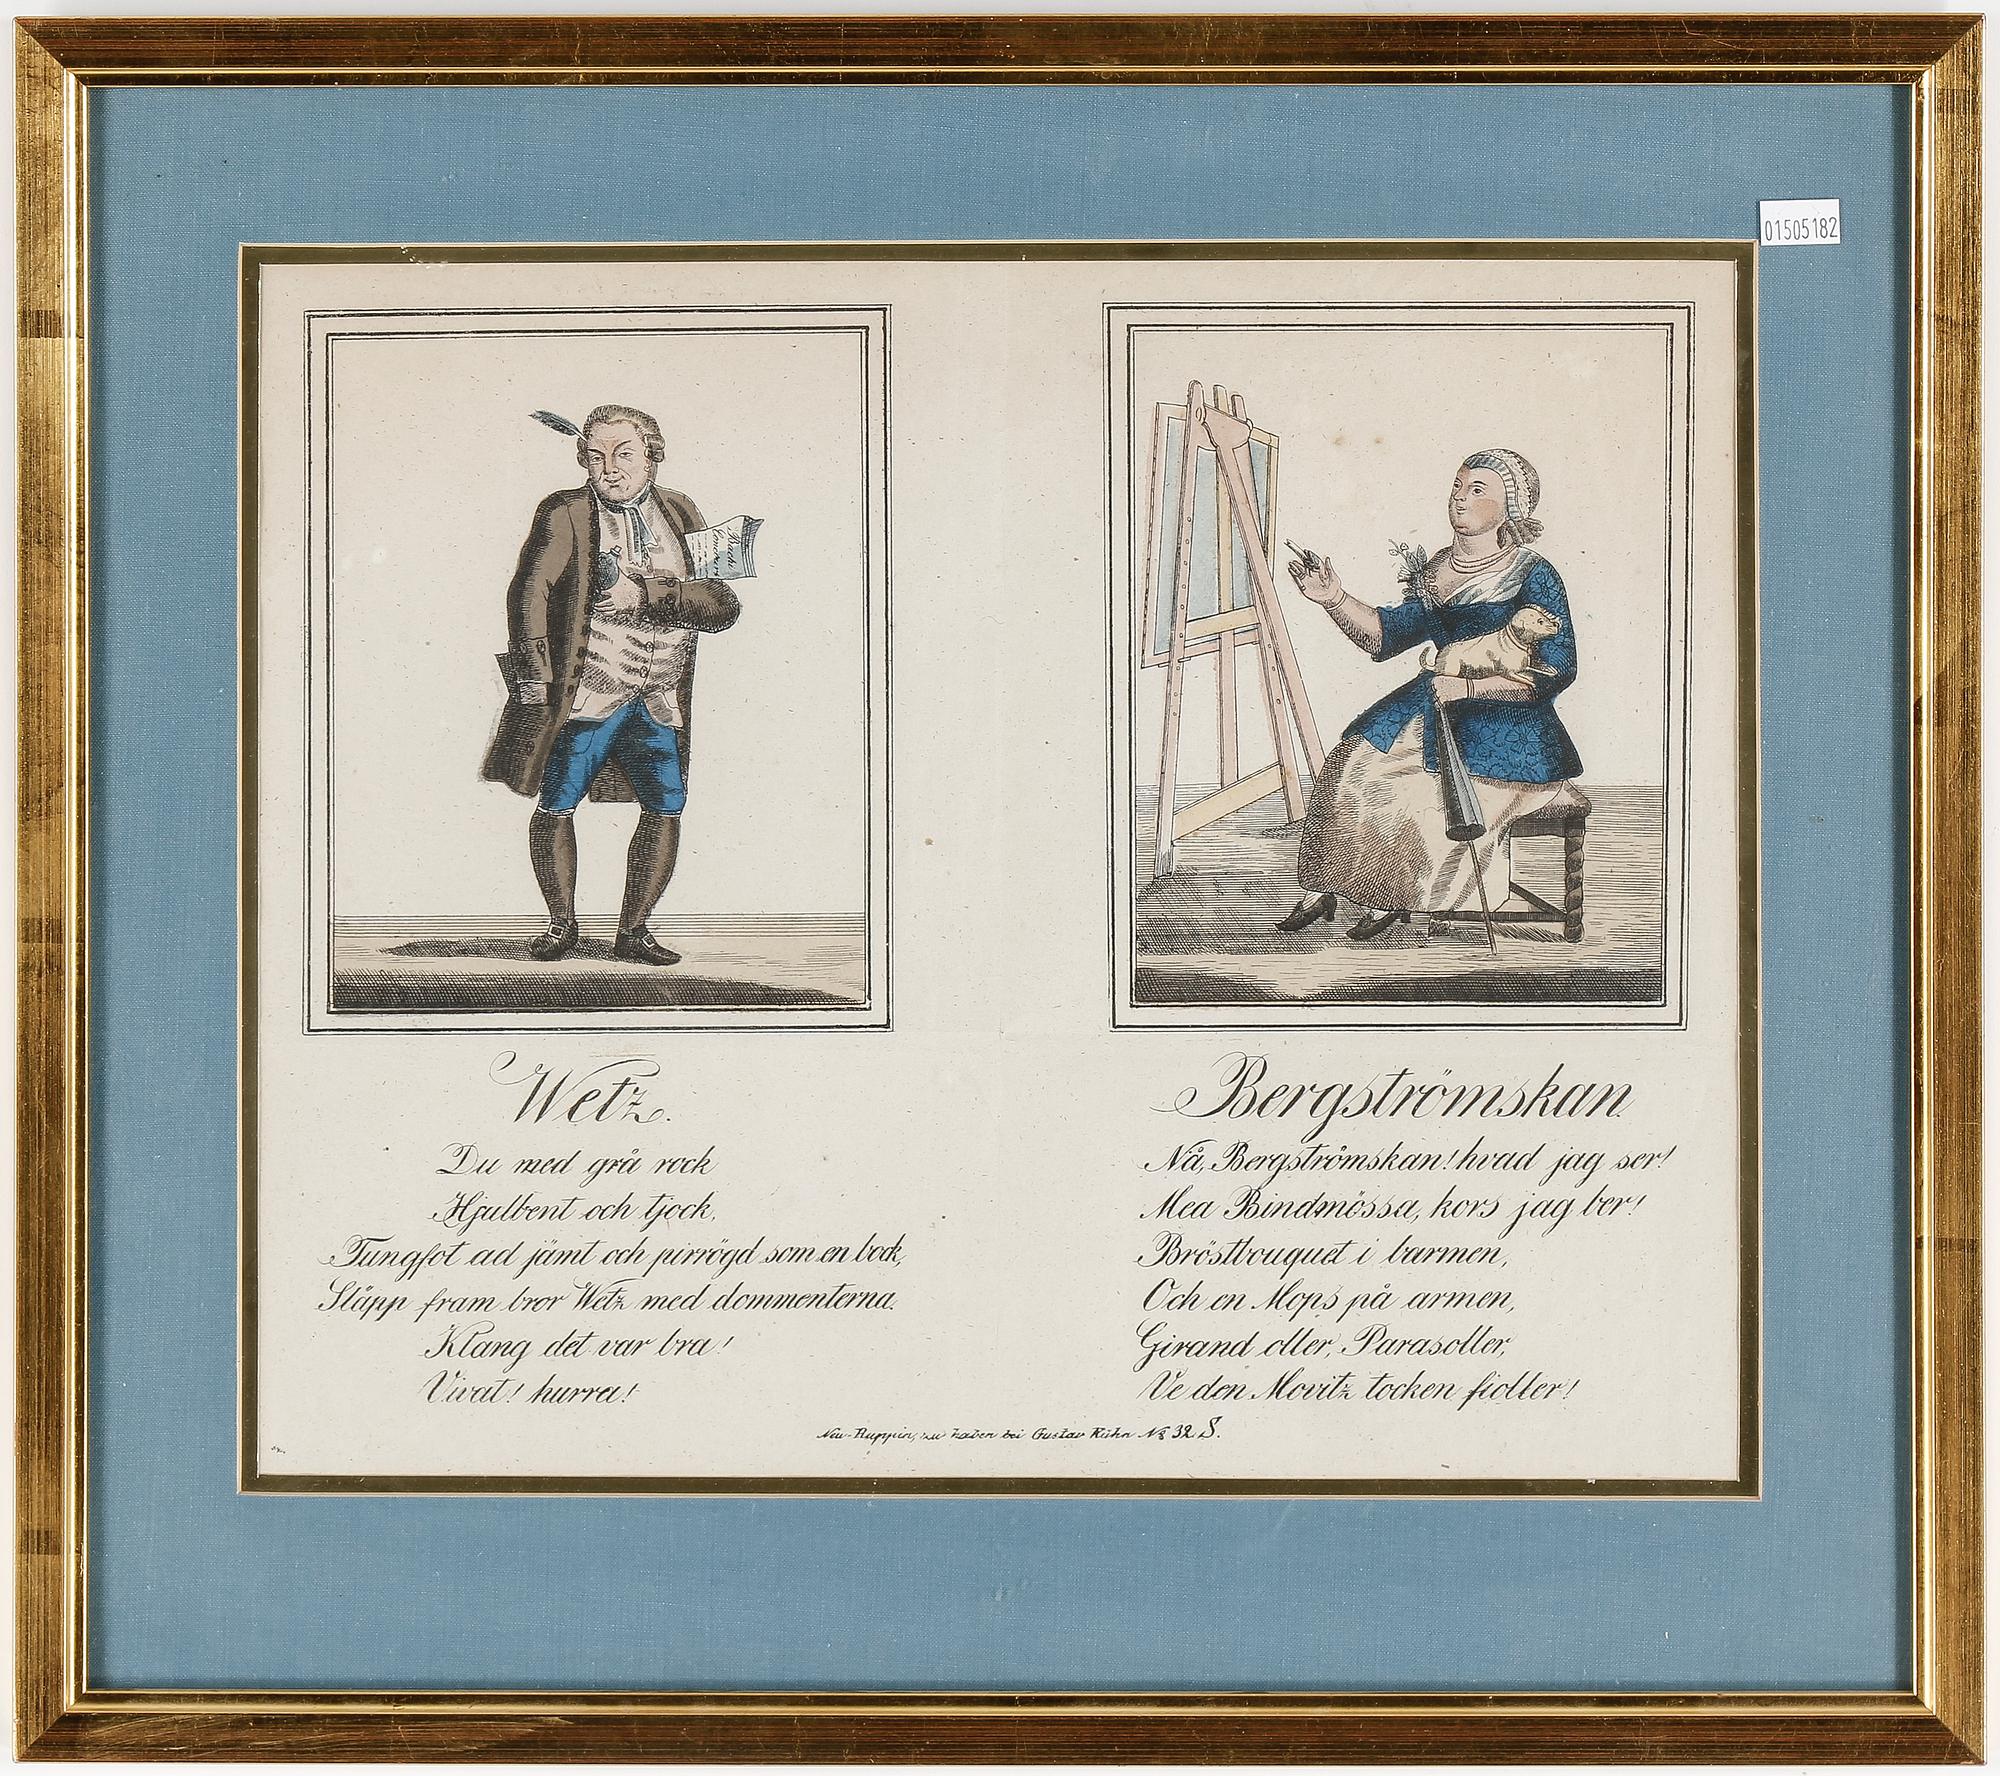 01505182
Wetz.
Du med grå rock
Hjulbent och tjock,
Tungfot ad jämt och pirrögd som en bock,
Släpp fram bror Wetz med dommenterna.
Klang det var bra!
Vivat! hurra!
Bergströmskan.
Nå, Bergströmskan! hvad jag ser!
Mea Bindmössa, kors jag ber!
Bröstbouquet i barmen,
Och en Mops på armen,
Girand oller, Parasoller,
Ve den Movitz tocken fioller!
Neu-Ruppin, zu haben bei Gustav Kühn No 32 S.